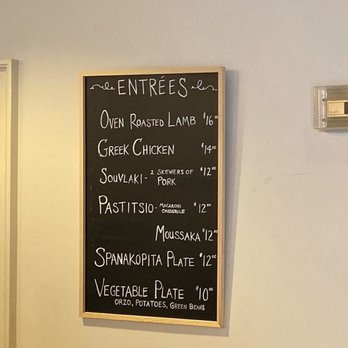 ENTRÉES
OVEN ROASTED LAMB $16
GREEK CHICKEN $14
SOUVLAKI - 2 SKEWERS OF PORK $12
PASTITSIO - MACARONI CASSEROLE $12
MOUSSAKA $12
SPANAKOPITA PLATE $12
VEGETABLE PLATE $10
ORZO, POTATOES, GREEN BEANS